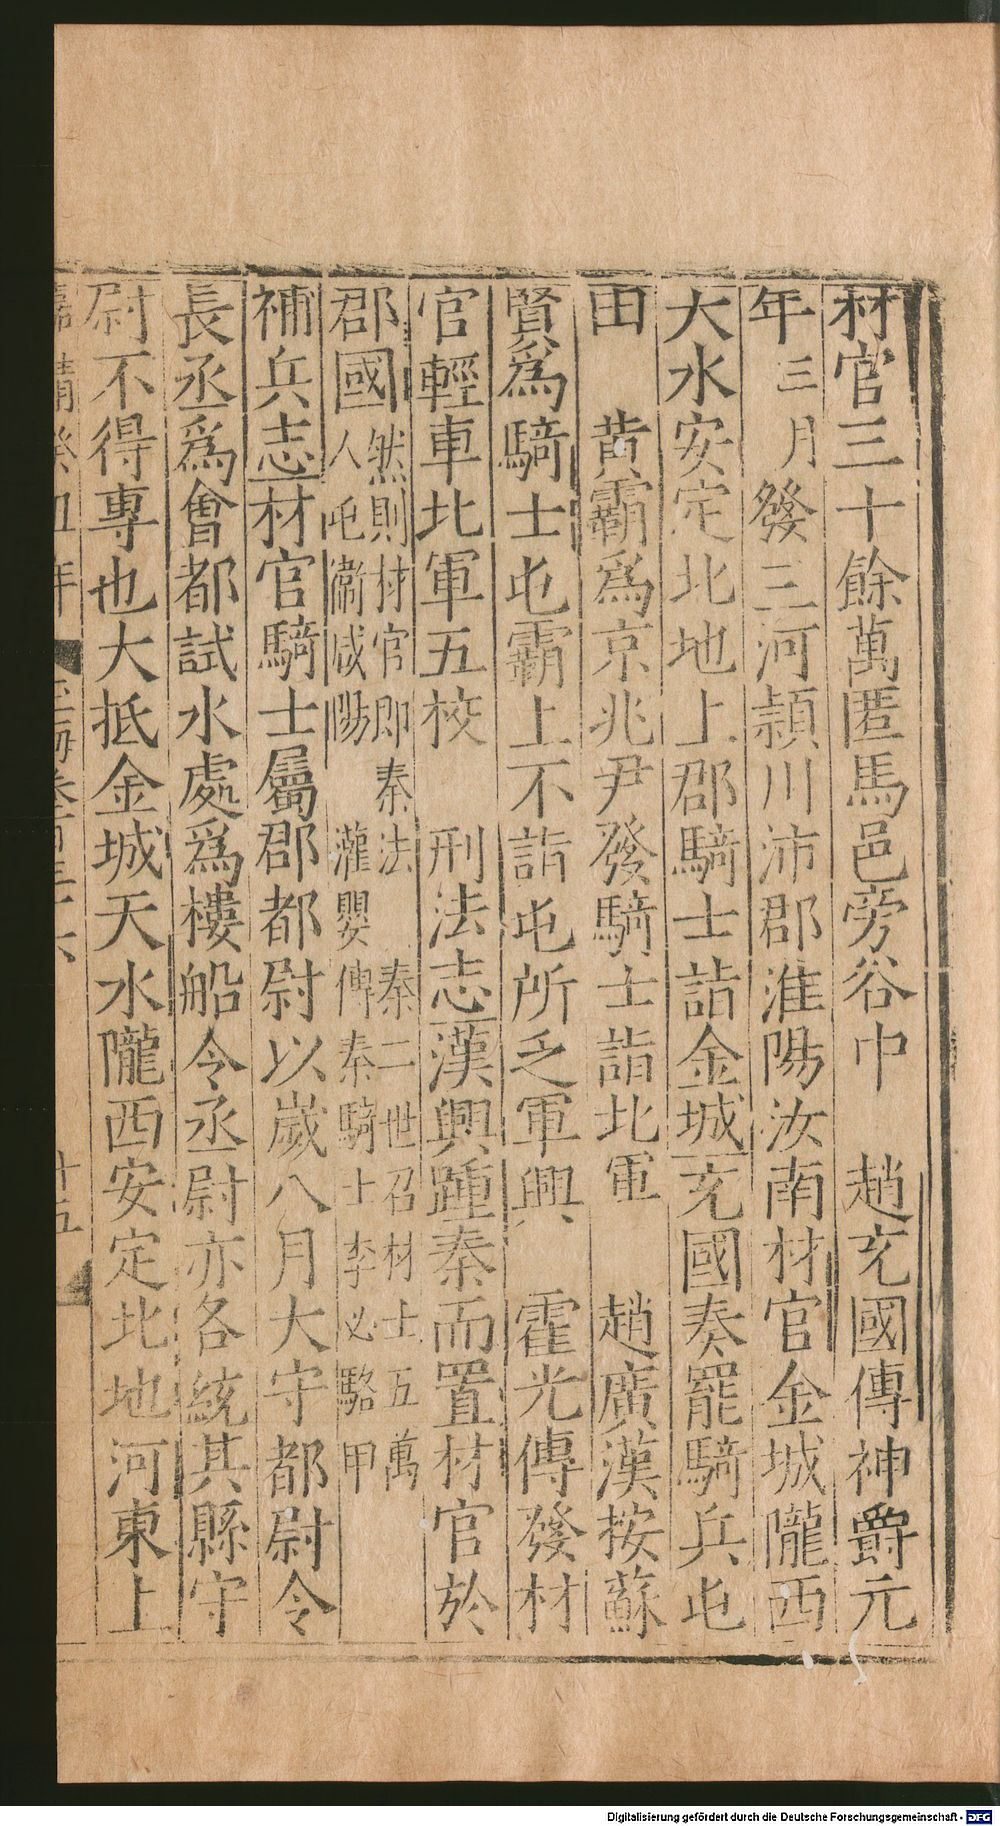 材官三十餘萬匿馬邑旁谷中　趙充國傳神爵元
年三月發三河潁川沛郡淮陽汝南材官金城隴西
天水安定北地上郡騎士詣金城充國奏罷騎兵屯
田　黄霸爲京兆尹發騎士詣北軍　趙廣漢按蘇
賢爲騎士屯霸上不詣屯所乏軍興　霍光傳發材
官輕車北軍五校　刑法志漢興踵秦而置材官於
郡國
然則材官即秦法　秦二世召材士五萬
人屯衛咸陽　灌嬰傳秦騎士李必駱甲
補兵志材官騎士屬郡都尉以歲八月大守都尉令
長丞爲會都試水處爲樓船令丞尉亦各統其縣守
尉不得專也大抵金城天水隴西安定北地河東上
嘉靖癸丑年　玉海卷百三十六　十五
Digitalisierung gefördert durch die Deutsche Forschungsgemeinschaft - DFG